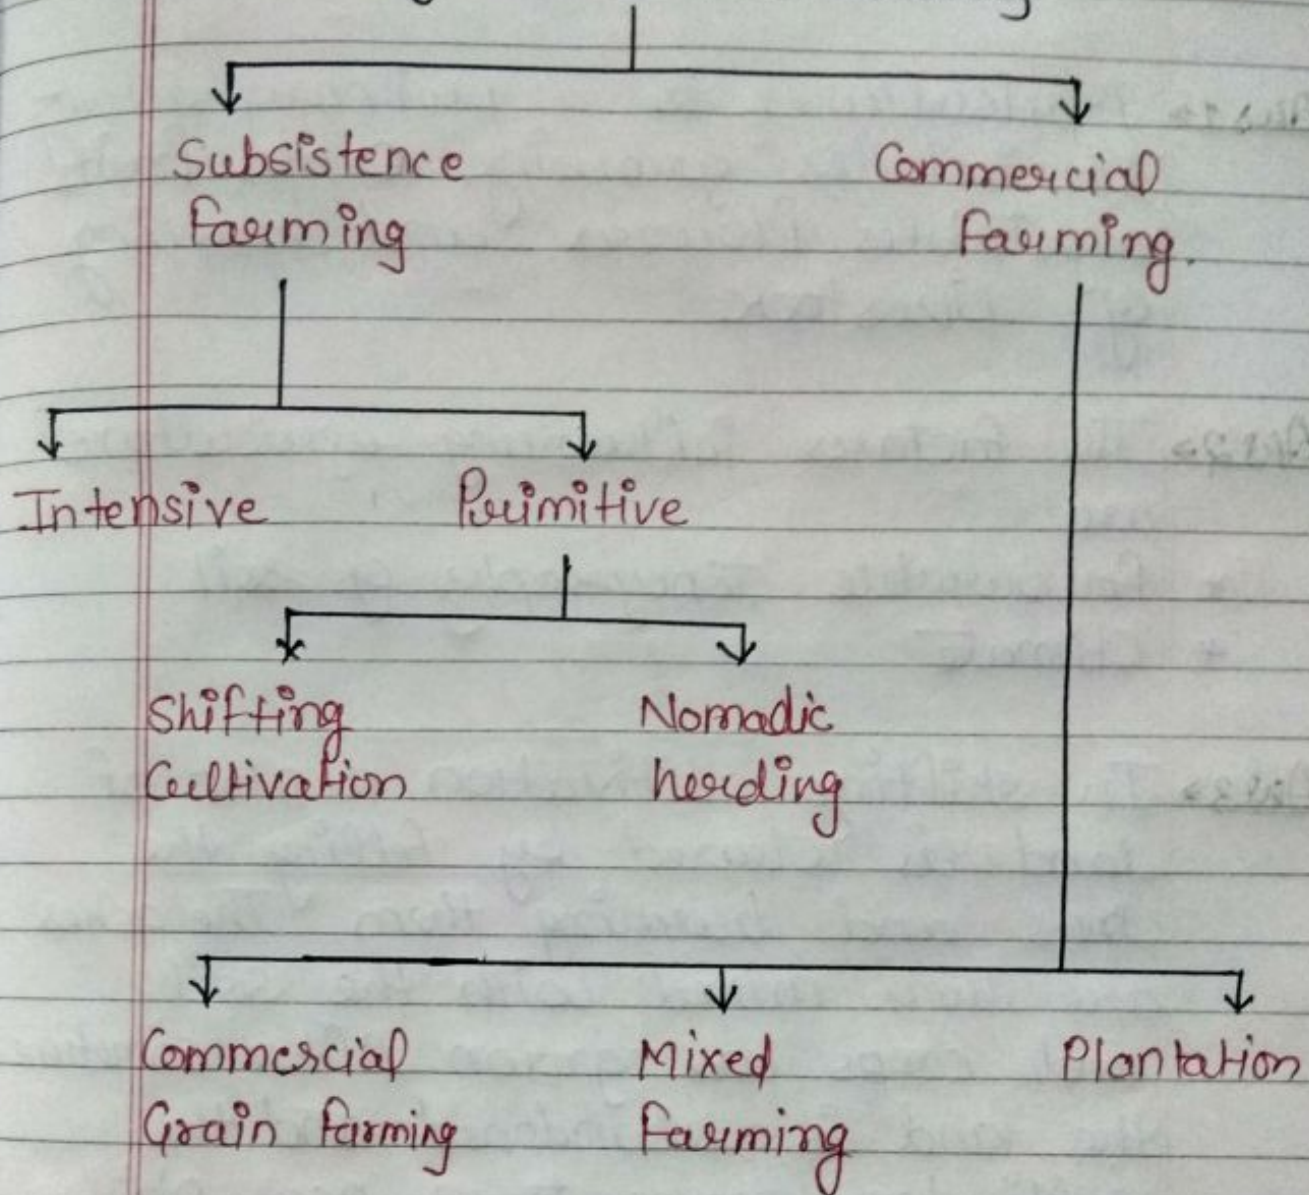 Subsistence
farming
Commercial
farming.
Intensive
Primitive
Shifting
Cultivation
Nomadic
herding
Commercial
Grain farming
Mixed
farming
Plantation